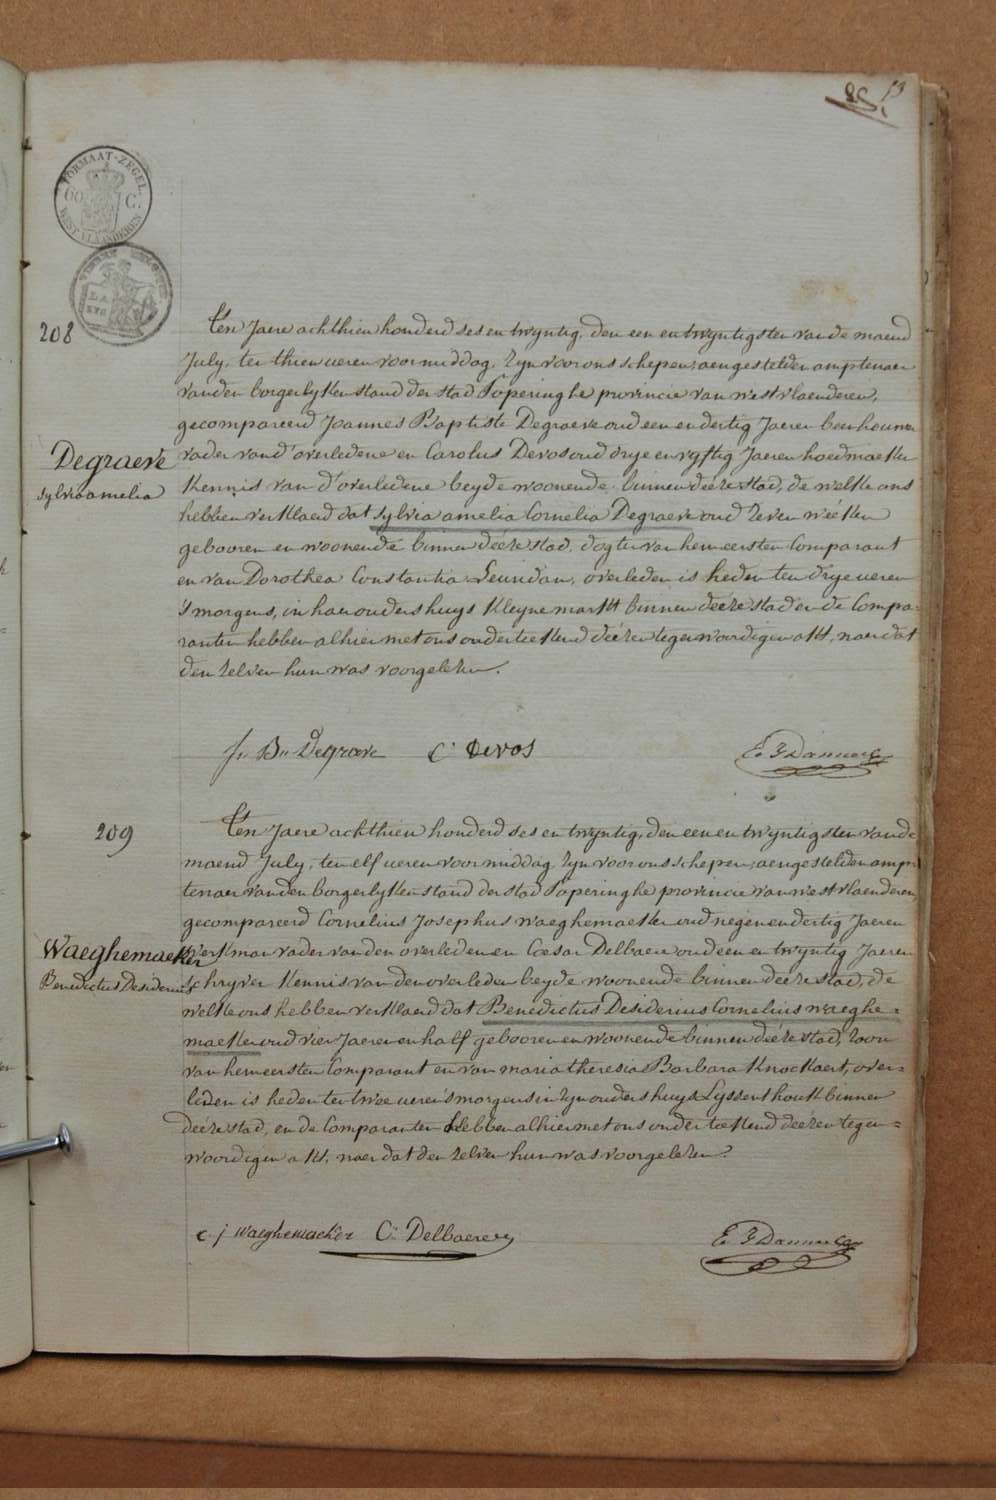 85. 13
FORMAAT-ZEGEL
60 C.
WEST-VLAANDEREN
208
Ten Jaere achthien honderd ses en twyntig, den een en twyntigsten van de maend
July, ten thien ueren voormiddag, Zyn voor ons schepen, aengestelden amptenaer
van den borgerlyken stand der stad Poperinghe provincie van westvlaenderen,
gecompareerd Joannes Baptiste Degraeve oud een en dertig Jaeren beenhouwer
Degraeve
sylvia amelia
vader vand' overledene en Carolus Devos oud drye en vyftig Jaeren hoedmaeker
Kennis van d'overledene beyde woonende binnen deéze stad, de welke ons
hebben verklaerd dat sylvia amelia Cornelia Degraeve oud Zeven wéeken
gebooren en woonende binnen deéze stad, dogter van hem eersten Comparant
en van Dorothea Constantia Leuridan, overleden is heden ten drye ueren
's morgens, in haer ouders huys Kleyne markt binnen deéze stad en de Compa=
ranten hebben alhier met ons onderteekend deézen tegenwoordigen akt, naer dat
den zelven hun was voorgelezen.
J. Bte Degraeve C: Devos
209
Ten Jaere achthien honderd ses en twyntig, den een en twyntigsten van de
maend July, ten elf ueren voormiddag, Zyn voor ons schepen, aengestelden amp=
tenaer van den borgerlyken stand der stad Poperinghe provincie van westvlaenderen,
gecompareerd Cornelius Josephus waeghemaeker oud negen en dertig Jaeren
Waeghemaeker
Benedictus Desiderius
werkman vader van den overledenen en Cæsar Delbaere oud een en twyntig Jaeren
schryver Kennis van den overleden beyde woonende binnen deéze stad, de
welke ons hebben verklaerd dat Benedictus Desiderius Cornelius waeghe=
maeker oud vier Jaeren en half gebooren en woonende binnen deéze stad, zoon
van hem eersten Comparant en van maria theresia Barbara Knockaert, over=
leden is heden ten twee ueren 's morgens in zyn ouders huys Lyssenthoek binnen
deéze stad, en de Comparanten hebben alhier met ons onderteekend deézen tegen=
woordigen akt, naer dat den zelven hun was voorgelezen.
c. j waeghemaeker C: Delbaere